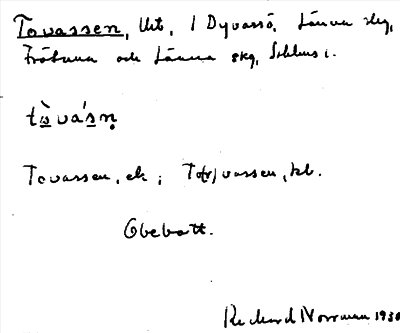 Tovassen, Utt, i Dyvassö, Länna skg,
Frötuna och Länna skg, Sthlms l.
tò̤va's̤n̥
Tovassen, ek; To(r)vassen, kb.
Obebott.
Richard Norrman 1930